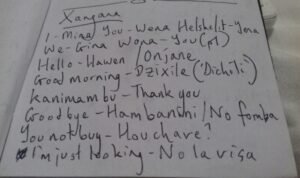 Xangana
I - Mina You - Wena He/she/it - Yena
We - Gina Wona - You (pl)
Hello - Hawen / Onjane
Good morning - Dzixile ('Dichili')
Kanimambu - Thank you
Goodbye - Hambanthi / No famba
You not buy - Hou chave?
I'm just looking - No la visa